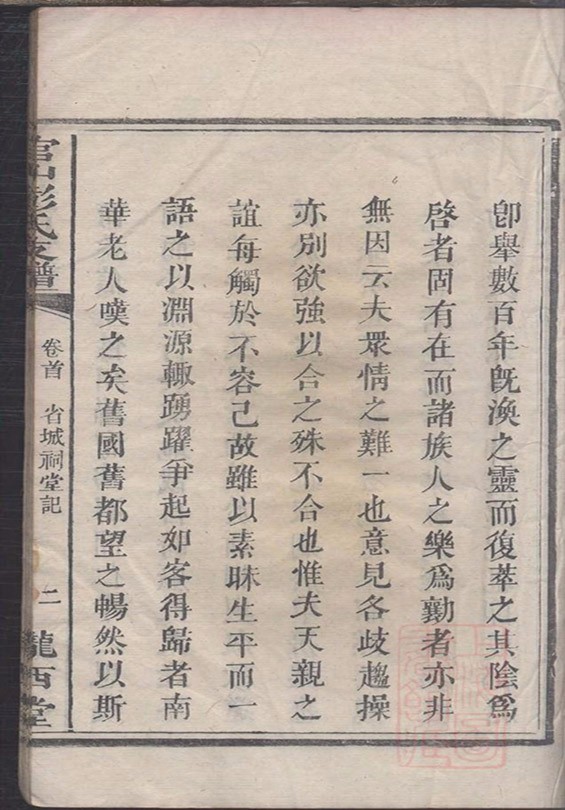 卽舉數百年旣渙之靈而復萃之其陰爲
啓者固有在而諸族人之樂爲勷者亦非
無因云夫眾情之難一也意見各歧趨操
亦別欲強以合之殊不合也惟夫天親之
誼每觸於不容己故雖以素昧生平而一
語之以淵源輙踴躍爭起如客得歸者南
華老人嘆之矣舊國舊都望之暢然以斯
宫山彭氏支譜
卷首 省城祠堂記 二
隴西堂